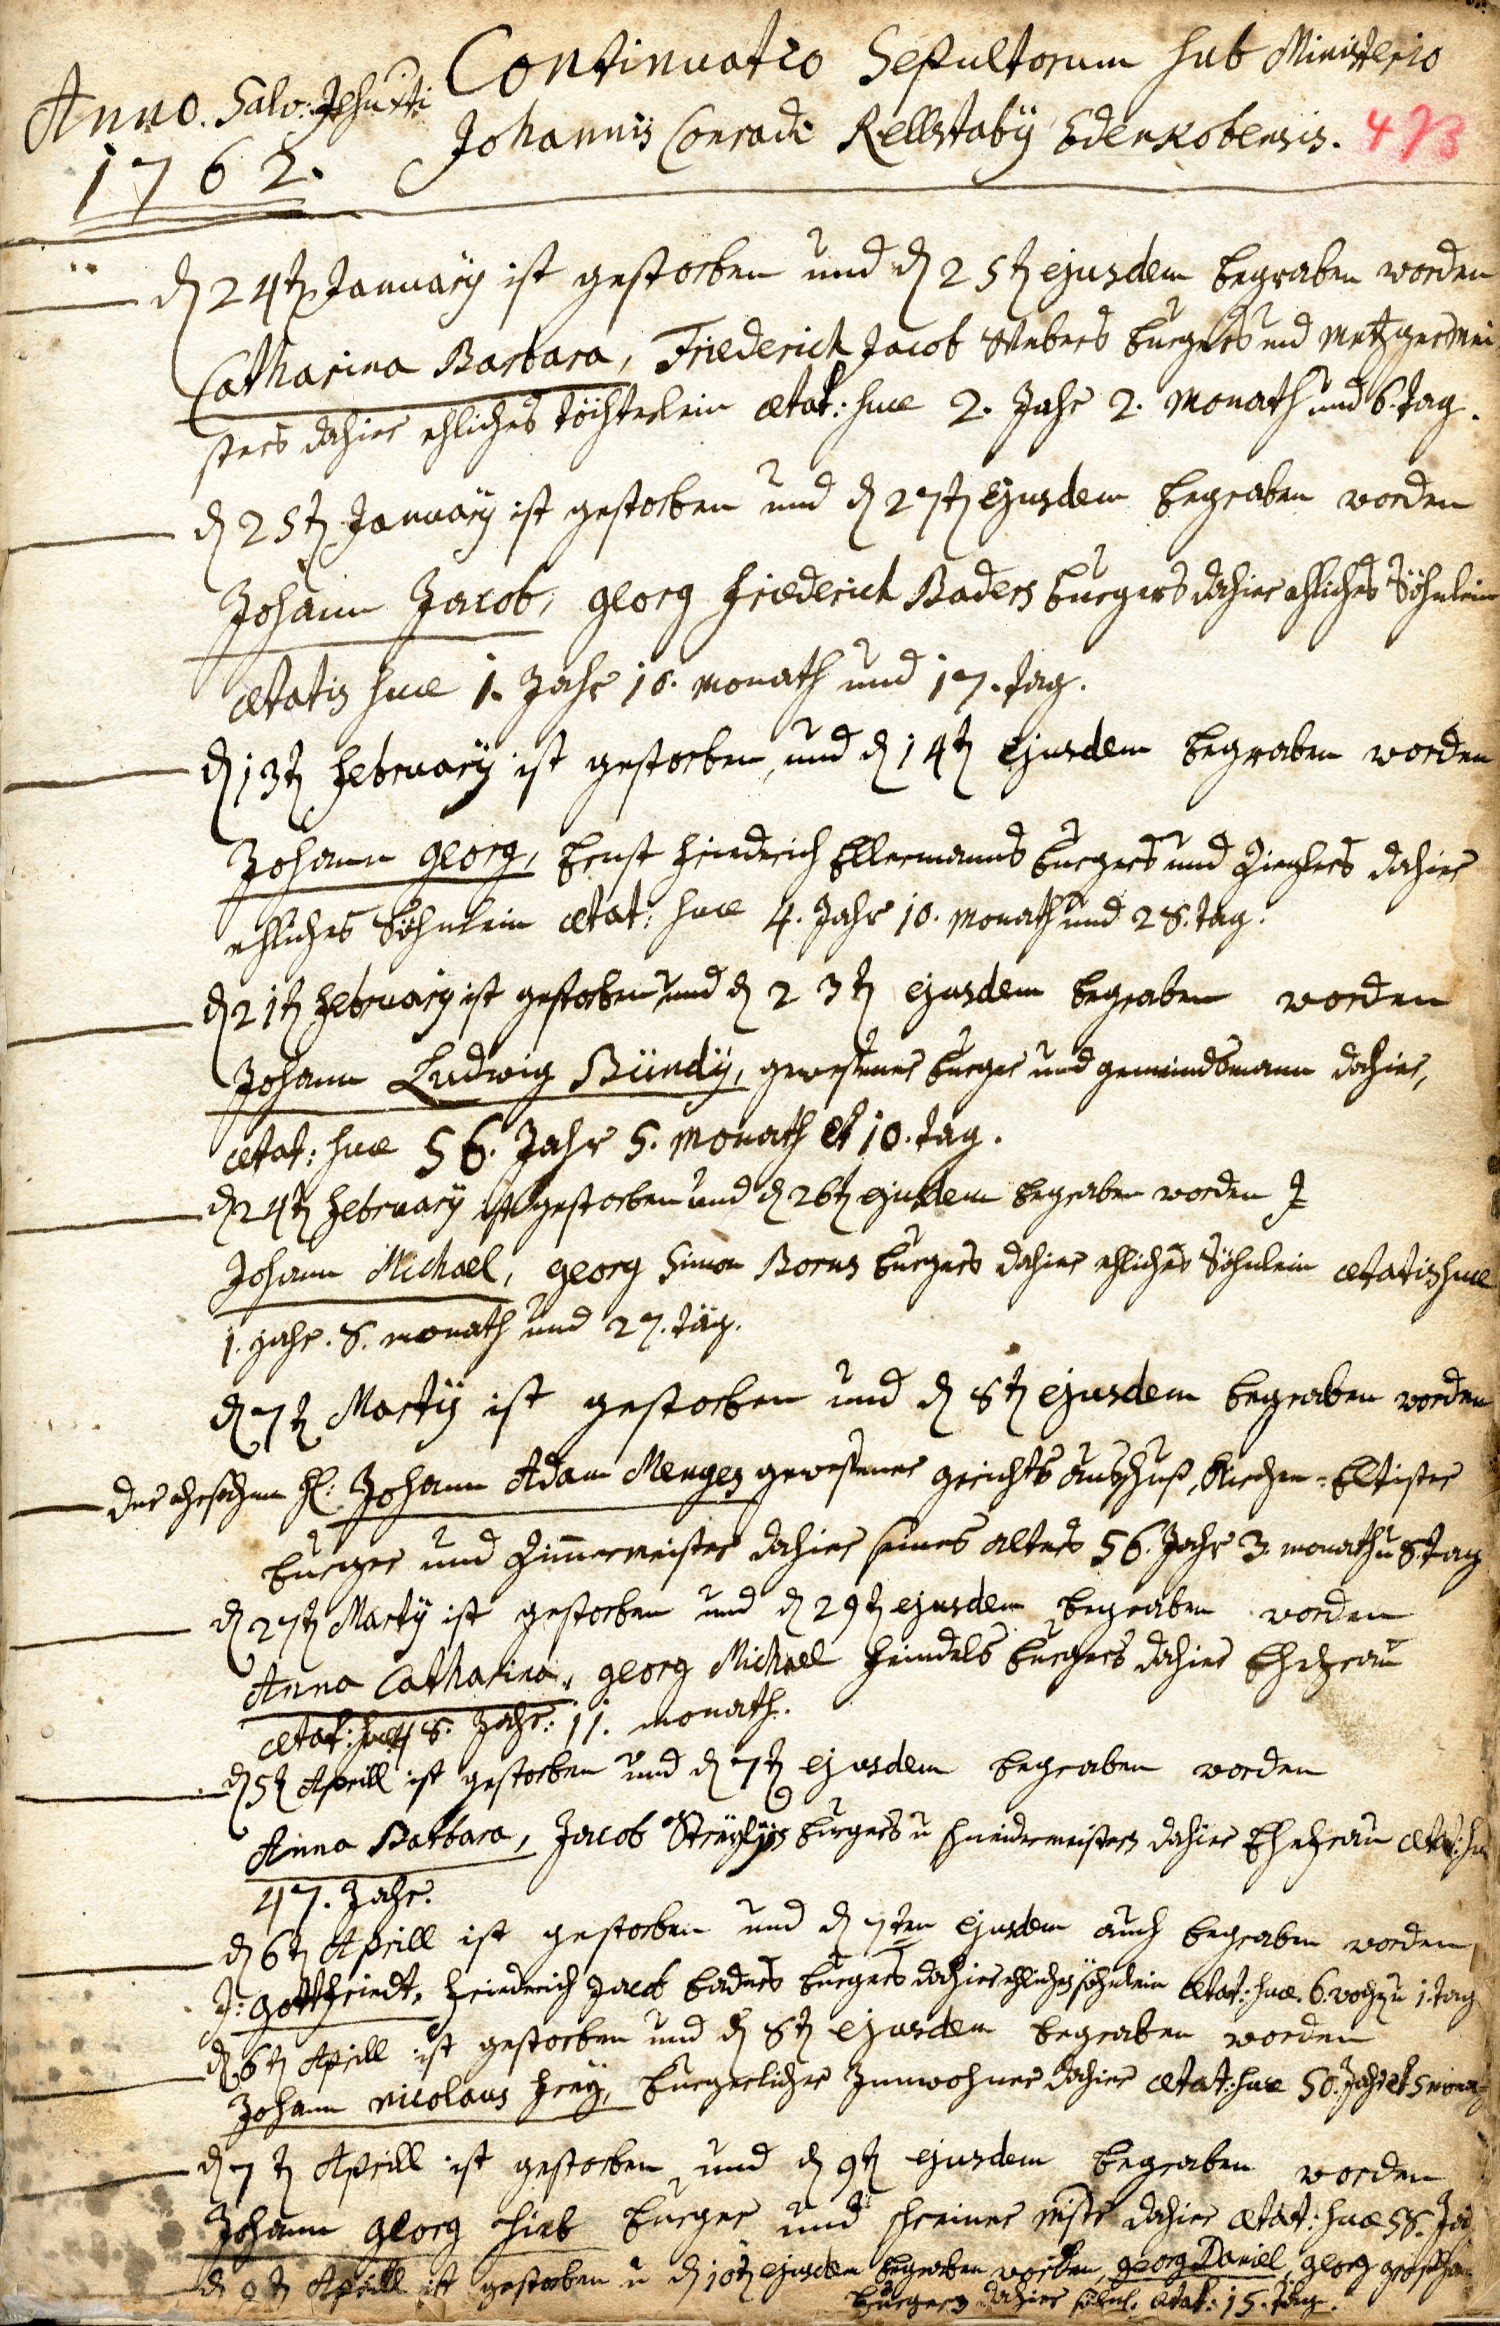 Continuatio Sepultorum sub Ministerio
Anno. Salv: Jesu Xti
Johannis Conradi Rellstaby Edenkobensis. 473
1762.
d 24t January ist gestorben und d 25t ejusdem begraben worden
Catharina Barbara, Friederich Jacob Webers burgers und Metzgermei
sters dahier ehliches töchterlein ætat: suæ 2. Jahr 2. Monath und 6. tag.
d 25t January ist gestorben und d 27t ejusdem begraben worden
Johann Jacob, Georg Friederich Baders burgers dahier ehliches Söhnlein
ætatis suæ 1. Jahr 10. Monath und 17. tag.
d 13t February ist gestorben, und d 14t ejusdem begraben worden
Johann Georg, Ernst Friederich Ellermanns burgers und Zieglers dahier
ehliches Söhnlein ætat: suæ 4. Jahr 10. Monath und 28. tag.
d 21t February ist gestorben und d 23t ejusdem begraben worden
Johann Ludwig Bündy, gewesener burger und gemeindsmann dahier,
ætat: suæ 56. Jahr 5. Monath et 10. tag.
d 24t February ist gestorben und d 26t ejusdem begraben worden
Johann Michael, Georg Simon Borns burgers dahier ehliches Söhnlein ætatis suæ
1. jahr. 8. monath und 27. täg.
d 7t Marty ist gestorben und d 8t ejusdem begraben worden
der ehrsahme H: Johann Adam Menges gewesener gerichts ausschuß, Kirchen-Eltister
burger und Zimmermeister dahier seines alters 56. Jahr 3. monath u 8. tag
d 27t Marty ist gestorben und d 29t ejusdem begraben worden
Anna Catharina, Georg Michael Heindels burgers dahier Ehefrau
ætat: suæ 48. Jahr: 11. monath.
d 5t Aprill ist gestorben und d 7t ejusdem begraben worden
Anna Barbara, Jacob burgers u schneidermeisters dahier Ehefrau ætat: suæ
47. Jahr.
d 6t Aprill ist gestorben und d 7ten ejusdem auch begraben worden
J: Gottfriedt, Friederich Jacob baders burgers dahier ehliches söhnlein ætat: suæ. 6. woch u 1. tag
d 6t Aprill ist gestorben und d 8t ejusdem begraben worden
Johann Nicolaus Frey, burgerlicher Innwohner dahier ætat: suæ 50. Jahr et 5 mona
d 7t Aprill ist gestorben und d 9t ejusdem begraben worden
Johann Georg Hieb burger und schreiner dahier ætat: suæ 58. Ja
d 9t Aprill ist gestorben u d 10t ejusdem begraben worden, Georg Daniel, Georg
burgers dahier söhnl. ætat: 15. täg.